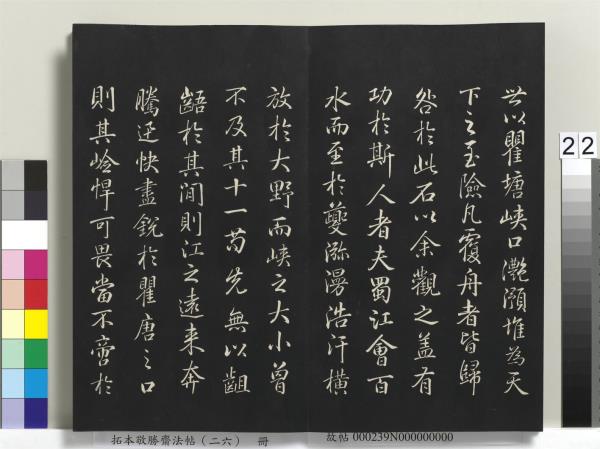 世以瞿塘峽口灩澦堆為天
下之至險凡覆舟者皆歸
咎於此石以余觀之蓋有
功於斯人者夫蜀江會百
水而至於夔瀰漫浩汗橫
放於大野而峽之大小曾
不及其十一苟先無以齟
齬於其間則江之遠來奔
騰迅快盡銳於瞿唐之口
則其崄悍可畏當不啻於
22
拓本敬勝齋法帖(二六) 冊
故帖 000239N000000000